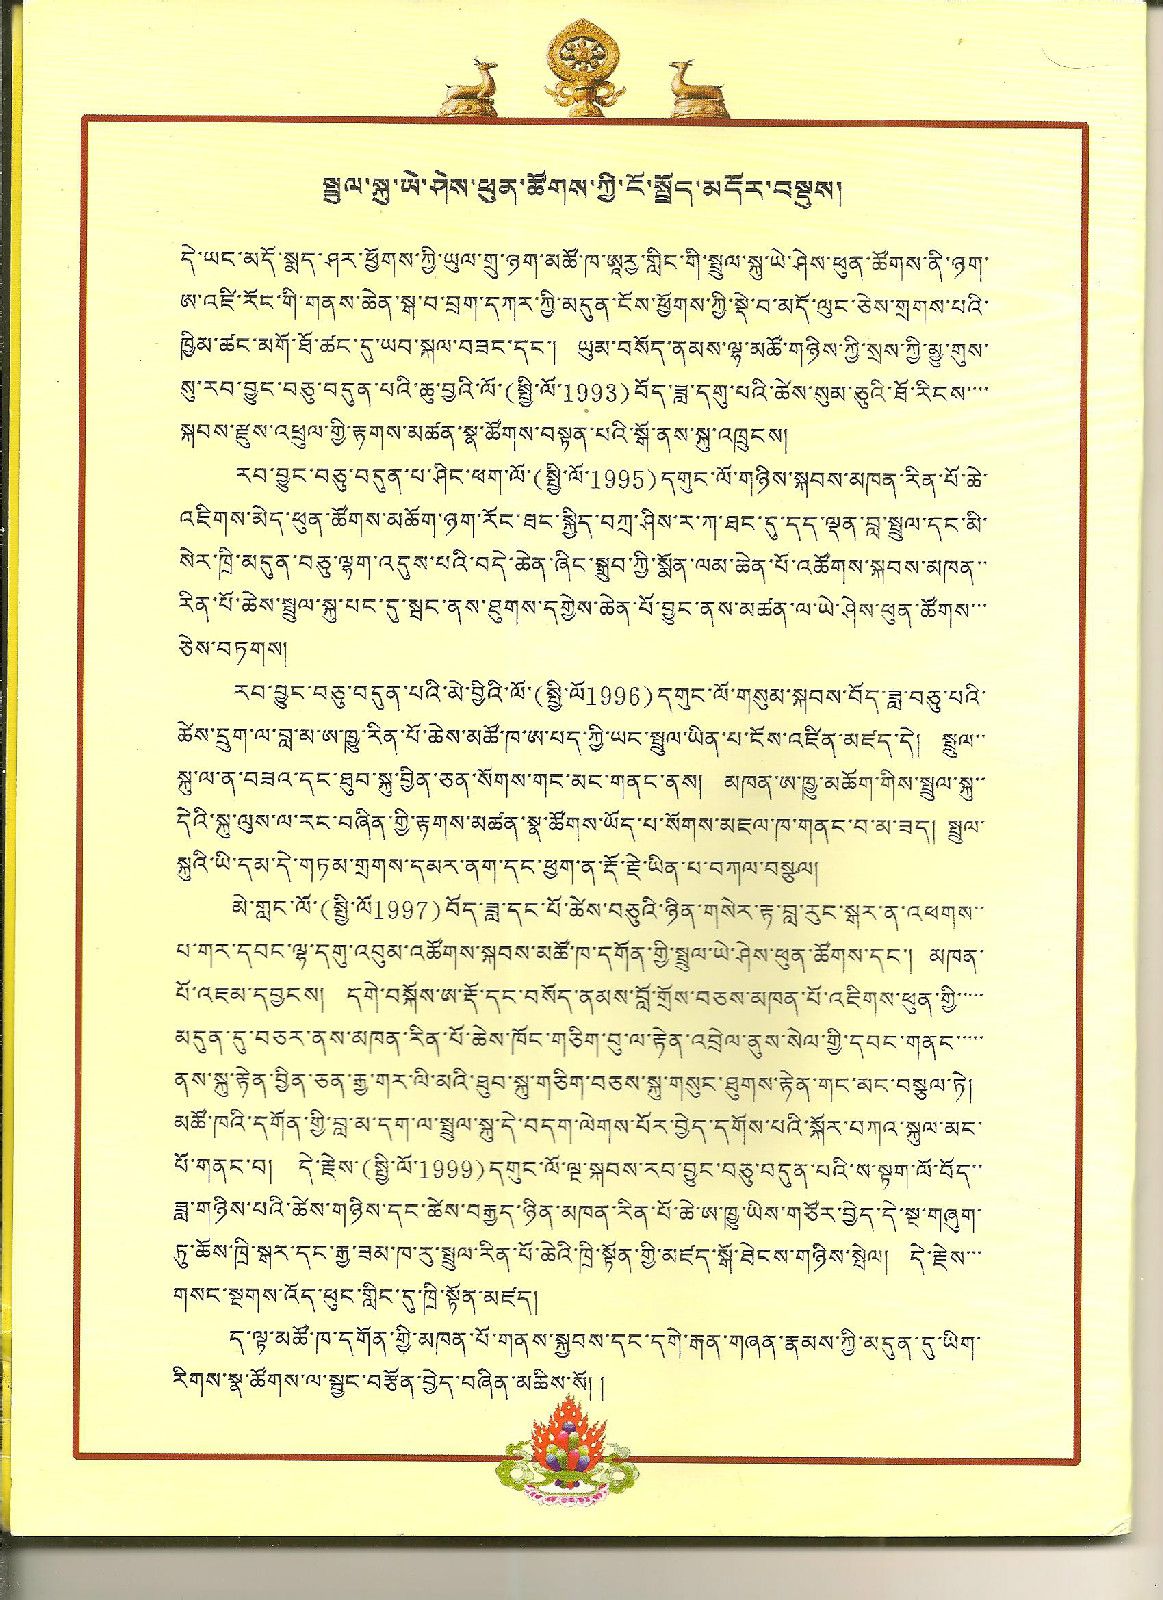 སྤྲུལ་སྐུ་ཡེ་ཤེས་ཕུན་ཚོགས་ཀྱི་ངོ་སྤྲོད་མདོར་བསྡུས།
དེ་ཡང་མདོ་སྨད་ཤར་ཕྱོགས་ཀྱི་ཡུལ་གྲུ་ཉག་མཚོ་ཁ་ཨཱརྱ་གླིང་གི་སྤྲུལ་སྐུ་ཡེ་ཤེས་ཕུན་ཚོགས་ནི་ཉག་
ཨ་འཛི་རོང་གི་གནས་ཆེན་སྒ་བ་བྲག་དཀར་ཀྱི་མདུན་ངོས་ཕྱོགས་ཀྱི་སྡེ་བ་མདོ་ལུང་ཅེས་གྲགས་པའི་
ཁྱིམ་ཚང་མགོ་ཐོ་ཚང་དུ་ཡབ་སྐལ་བཟང་དང་། ཡུམ་བསོད་ནམས་ལྷ་མཚོ་གཉིས་ཀྱི་སྲས་ཀྱི་མྱུ་གུས་
སུ་རབ་བྱུང་བཅུ་བདུན་པའི་ཆུ་བྱའི་ལོ་(སྤྱི་ལོ་1993)བོད་ཟླ་དགུ་པའི་ཚེས་སུམ་ཅུའི་ཐོ་རིངས་
སྐབས་རྫུས་འཕྲུལ་གྱི་རྟགས་མཚན་སྣ་ཚོགས་བསྟན་པའི་སྒོ་ནས་སྐུ་འཁྲུངས།
རབ་བྱུང་བཅུ་བདུན་པ་ཤིང་ཕག་ལོ་(སྤྱི་ལོ་1995)དགུང་ལོ་གཉིས་སྐབས་མཁན་རིན་པོ་ཆེ་
འཇིགས་མེད་ཕུན་ཚོགས་མཆོག་ཉག་རོང་ཐང་སྐྱིད་བཀྲ་ཤིས་ར་ཀ་ཐང་དུ་དད་ལྡན་བླ་སྤྲུལ་དང་མི་
སེར་ཁྲི་མདུན་བཅུ་ལྷག་འདུས་པའི་བདེ་ཆེན་ཞིང་སྒྲུབ་ཀྱི་སྨོན་ལམ་ཆེན་པོ་འཚོགས་སྐབས་མཁན་
རིན་པོ་ཆེས་སྤྲུལ་སྐུ་པང་དུ་སྦང་ནས་ཐུགས་དགྱེས་ཆེན་པོ་བྱུང་ནས་མཚན་ལ་ཡེ་ཤེས་ཕུན་ཚོགས་
ཅེས་བཏགས།
རབ་བྱུང་བཅུ་བདུན་པའི་མེ་བྱིའི་ལོ་(སྤྱི་ལོ1996)དགུང་ལོ་གསུམ་སྐབས་བོད་ཟླ་བཅུ་པའི་
ཚེས་དྲུག་ལ་བླ་མ་ཨ་ཁྱུ་རིན་པོ་ཆེས་མཚོ་ཁ་ཨ་པད་ཀྱི་ཡང་སྤྲུལ་ཡིན་པ་ངོས་འཛིན་མཛད་དེ། སྤྲུལ་
སྐུ་ལ་ན་བཟའ་དང་ཐུབ་སྐུ་བྱིན་ཅན་སོགས་གང་མང་གནང་ནས། མཁན་ཨ་ཁྱུ་མཆོག་གིས་སྤྲུལ་སྐུ་
དེའི་སྐུ་ལུས་ལ་རང་བཞིན་གྱི་རྟགས་མཚན་སྣ་ཚོགས་ཡོད་པ་སོགས་མཇལ་ཁ་གནང་བ་མ་ཟད། སྤྲུལ་
སྐུའི་ཡི་དམ་དེ་གཏམ་གྲགས་དམར་ནག་དང་ཕྱག་ན་རྡོ་རྗེ་ཡིན་པ་བཀལ་བསྩལ།
མེ་གླང་ལོ་(སྤྱི་ལོ1997)བོད་ཟླ་དང་པོ་ཚེས་བཅུའི་ཉིན་གསེར་རྟ་བླ་རུང་སྒར་ན་འཕགས་
པ་གར་དབང་ལྷ་དགུ་འབུམ་འཚོགས་སྐབས་མཚོ་ཁ་དགོན་གྱི་སྤྲུལ་ཡེ་ཤེས་ཕུན་ཚོགས་དང་། མཁན་
པོ་འཇམ་དབྱངས། དགེ་བསྐོས་ཨ་རྡོ་དང་བསོད་ནམས་བློ་གྲོས་བཅས་མཁན་པོ་འཇིགས་ཕུན་གྱི་
མདུན་དུ་བཅར་ནས་མཁན་རིན་པོ་ཆེས་ཁོང་གཅིག་བུ་ལ་རྟེན་འབྲེལ་ནུས་སེལ་གྱི་དབང་གནང་
ནས་སྐུ་རྟེན་བྱིན་ཅན་རྒྱ་གར་ལི་མའི་ཐུབ་སྐུ་གཅིག་བཅས་སྐུ་གསུང་ཐུགས་རྟེན་གང་མང་བསྩལ་ཏེ།
མཚོ་ཁའི་དགོན་གྱི་བླ་མ་དག་ལ་སྤྲུལ་སྐུ་དེ་བདག་ལེགས་པོར་བྱེད་དགོས་པའི་སྐོར་བཀའ་སྐུལ་མང་
པོ་གནང་བ། དེ་རྗེས་(སྤྱི་ལོ་1999)དགུང་ལོ་ལྔ་སྐབས་རབ་བྱུང་བཅུ་བདུན་པའི་ས་སྟག་ལོ་བོད་
ཟླ་གཉིས་པའི་ཚེས་གཉིས་དང་ཚེས་བརྒྱད་ཉིན་མཁན་རིན་པོ་ཆེ་ཨ་ཁྱུ་ཡིས་གཙོར་བྱེད་དེ་སྔ་གཞུག་
ཏུ་ཆོས་ཁྲི་སྒར་དང་རྒྱ་ཟམ་ཁ་རུ་སྤྲུལ་རིན་པོ་ཆེའི་ཁྲི་སྟོན་གྱི་མཛད་སྒོ་ཐེངས་གཉིས་སྤེལ། དེ་རྗེས་
གསང་སྔགས་འོད་ཕུང་གླིང་དུ་ཁྲི་སྟོན་མཛད།
ད་ལྟ་མཚོ་ཁ་དགོན་གྱི་མཁན་པོ་གནས་སྐྱབས་དང་དགེ་རྒན་གཞན་རྣམས་ཀྱི་མདུན་དུ་ཡིག་
རིགས་སྣ་ཚོགས་ལ་སྦྱང་བརྩོན་བྱེད་བཞིན་མཆིས་སོ། །